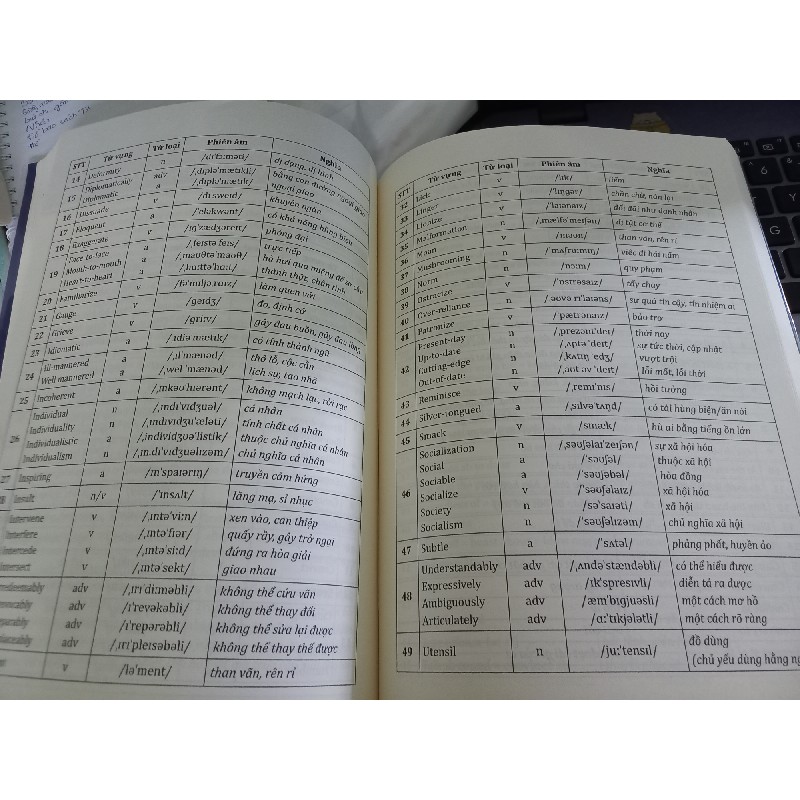 STT Từ vựng Từ loại Phiên âm Nghĩa
14 Deformity n /dɪˈfɔːməti/ dị dạng, dị hình
15 Diplomatically adv /ˌdɪpləˈmætɪkli/ bằng con đường ngoại giao
Diplomatic a /ˌdɪpləˈmætɪk/ ngoại giao
16 Dissuade v /dɪˈsweɪd/ khuyên ngăn
17 Eloquent a /ˈeləkwənt/ có khả năng hùng biện
18 Exaggerate v /ɪɡˈzædʒəreɪt/ phóng đại
19 Face-to-face a trực tiếp
Mouth-to-mouth hô hơi qua miệng để sơ cứu
Heart-to-heart thành thực, chân tình
20 Familiarize v /fəˈmɪliəraɪz/ làm quen với
21 Gauge v /ɡeɪdʒ/ đo, định cỡ
22 Grieve v /ɡriːv/ gây đau buồn
23 Idiomatic a /ˌɪdiəˈmætɪk/ có tính thành ngữ
24 Ill-mannered a /ˌɪlˈmænəd/ thô lỗ, cục cằn
Well mannered a /ˌwelˈmænəd/ lịch sự, tao nhã
25 Incoherent a /ˌɪnkəʊˈhɪərənt/ không mạch lạc, rời rạc
26 Individual n /ˌɪndɪˈvɪdʒuəl/ cá nhân
Individuality n /ˌɪndɪvɪdʒuˈæləti/ tính chất cá nhân
Individualistic a /ˌɪndɪvɪdʒuəˈlɪstɪk/ thuộc chủ nghĩa cá nhân
Individualism n /ˌɪndɪˈvɪdʒuəlɪzəm/ chủ nghĩa cá nhân
27 Inspiring a /ɪnˈspaɪərɪŋ/ truyền cảm hứng
Insult n/v /ˈɪnsʌlt/ lăng mạ, sỉ nhục
Intervene v /ˌɪntəˈviːn/ xen vào, can thiệp
Interfere v /ˌɪntəˈfɪər/ quấy rầy, gây trở ngại
Intercede v /ˌɪntəˈsiːd/ đứng ra hòa giải
Intersect v /ˌɪntəˈsekt/ giao nhau
adv /ˌɪrɪˈdiːməbli/ không thể cứu vãn
adv /ɪˈrevəkəbli/ không thể thay đổi
adv /ɪˈrepərəbli/ không thể sửa lại được
adv /ˌɪrɪˈpleɪsəbli/ không thể thay thế được
v /ləˈment/ than vãn, rên rỉ
STT Từ vựng Từ loại Phiên âm Nghĩa
32 Lick v /lɪk/ liếm
33 Linger v /ˈlɪŋɡər/ chần chừ, nán lại
34 Lionize v /ˈlaɪənaɪz/ đối đãi như danh nhân
35 Malformation n /ˌmælfɔːˈmeɪʃən/ dị tật cơ thể
36 Moan v /məʊn/ than vãn, rên rỉ
37 Mushrooming n /ˈmʌʃruːmɪŋ/ việc đi hái nấm
38 Norm n /nɔːm/ quy phạm
39 Ostracize v /ˈɒstrəsaɪz/ tẩy chay
40 Over-reliance n /ˌəʊvə rɪˈlaɪəns/ sự quá tin cậy, tín nhiệm ai
41 Patronize v /ˈpætrənaɪz/ bảo trợ
42 Present-day n /ˌprezəntˈdeɪt/ thời nay
Up-to-date n /ˌʌptəˈdeɪt/ sự tức thời, cập nhật
Cutting-edge n /ˌkʌtɪŋˈedʒ/ vượt trội
Out-of-date n /ˌaʊt əvˈdeɪt/ lỗi mốt, lỗi thời
43 Reminisce v /ˌremɪˈnɪs/ hồi tưởng
44 Silver-tongued a /ˌsɪlvəˈtʌŋd/ có tài hùng biện/ăn nói
45 Smack v /smæk/ hù ai bằng tiếng ồn lớn
46 Socialization n /ˌsəʊʃəlaɪˈzeɪʃən/ sự xã hội hóa
Social a /ˈsəʊʃəl/ thuộc xã hội
Sociable a /ˈsəʊʃəbəl/ hòa đồng
Socialize v /ˈsəʊʃəlaɪz/ xã hội hóa
Society n /səˈsaɪəti/ xã hội
Socialism n /ˈsəʊʃəlɪzəm/ chủ nghĩa xã hội
47 Subtle a /ˈsʌtəl/ phảng phất, huyền ảo
48 Understandably adv /ˌʌndəˈstændəbli/ có thể hiểu được
Expressively adv /ɪkˈspresɪvli/ diễn tả ra được
Ambiguously adv /æmˈbɪɡjuəsli/ một cách mơ hồ
Articulately adv /ɑːˈtɪkjələtli/ một cách rõ ràng
49 Utensil n /juːˈtensɪl/ đồ dùng
(chủ yếu dùng hằng